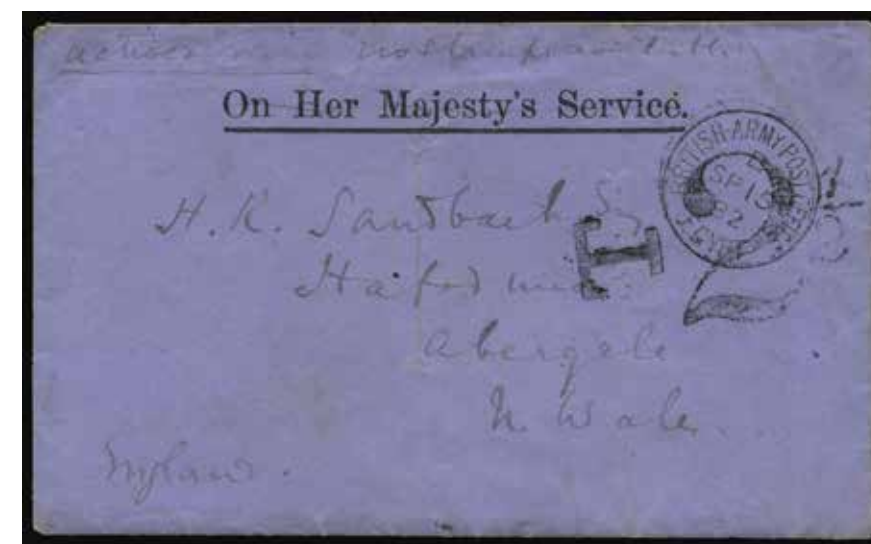 active no stamp
On Her Majesty's Service.
BRITISH ARMY POST OFFICE
SP 15
82
EGYPT
T
2
H. R. Sandbach Esq
Hafod
Abergele
N. Wales
England.